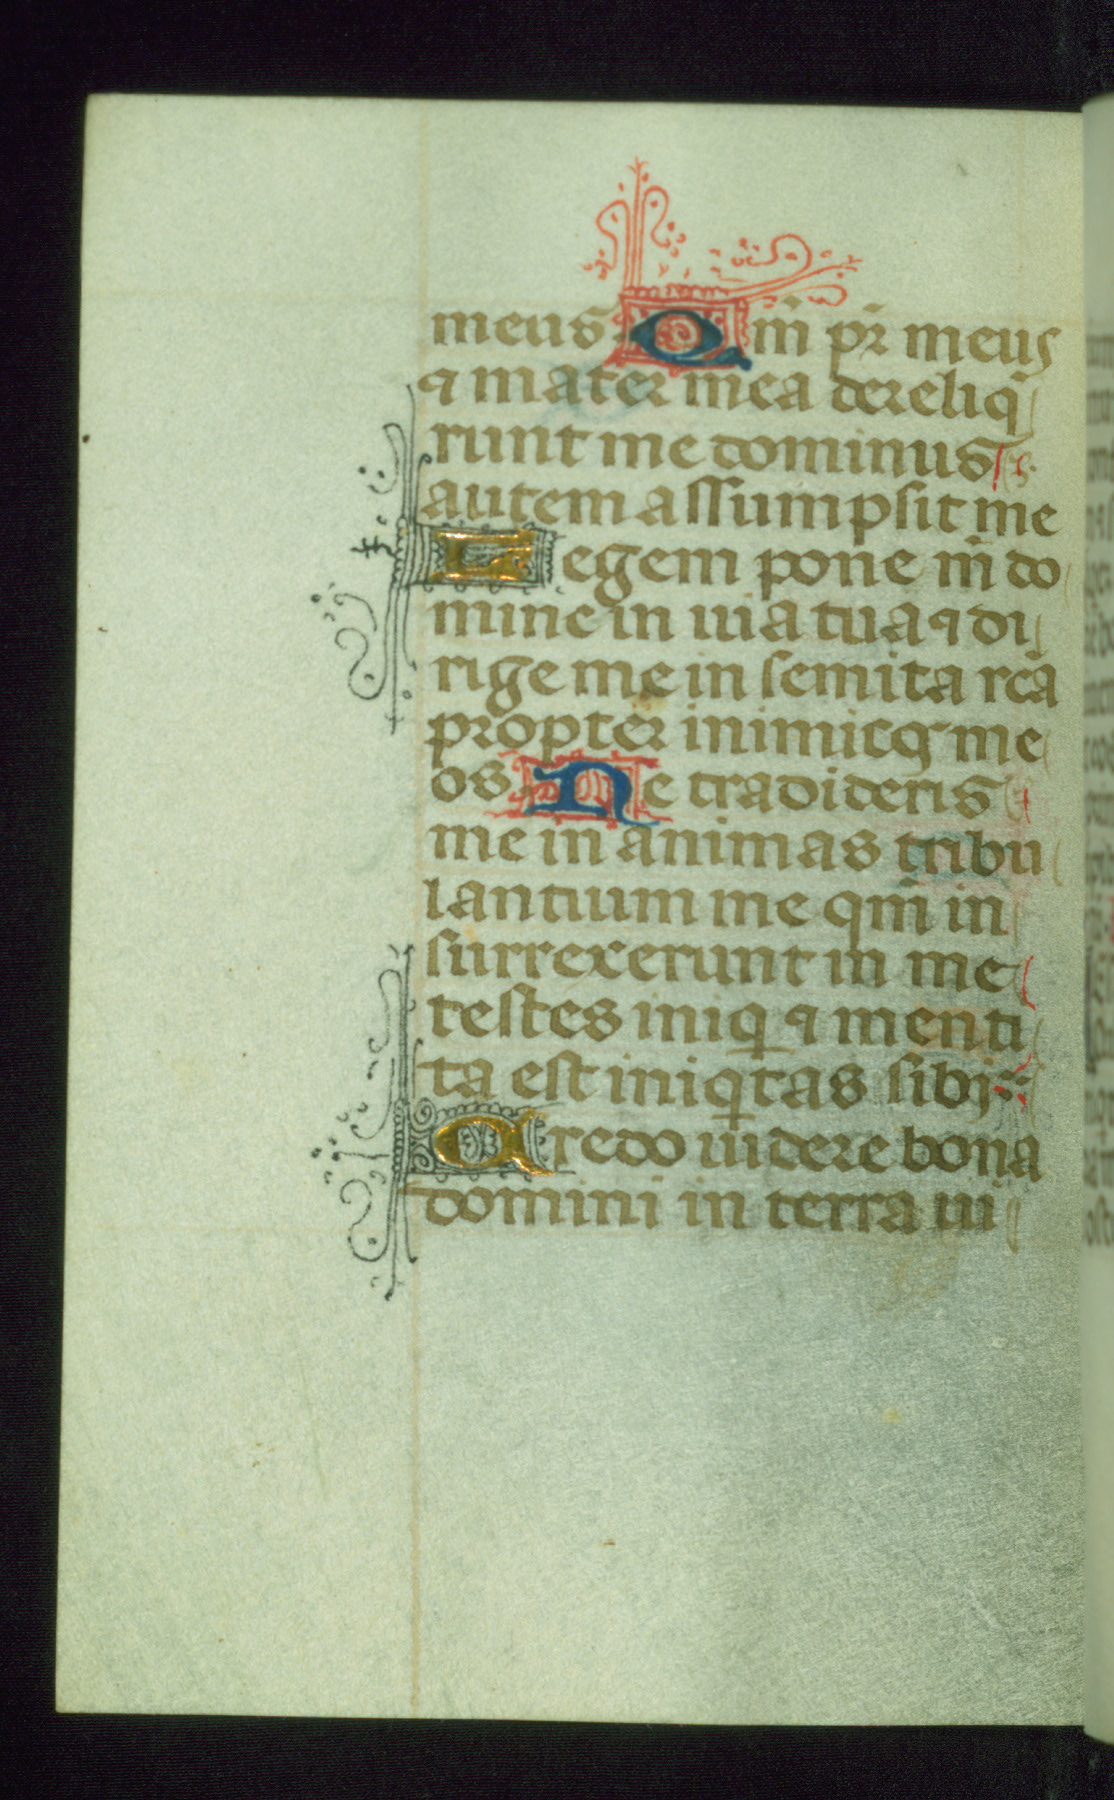 meus Qm̄ pr̄ meus
⁊ mater mea dereliq̄
runt me dominus
autem assumpsit me
Legem pone m̄ do
mine in uia tua ⁊ di
rige me in semita rc̄a
propter inimicos me
os Ne tradideris
me in animas tribu
lantium me qm̄ in
surrexerunt in me
testes iniq̄ ⁊ menti
ta est iniq̄tas sibi
Credo uidere bona
domini in terra ui